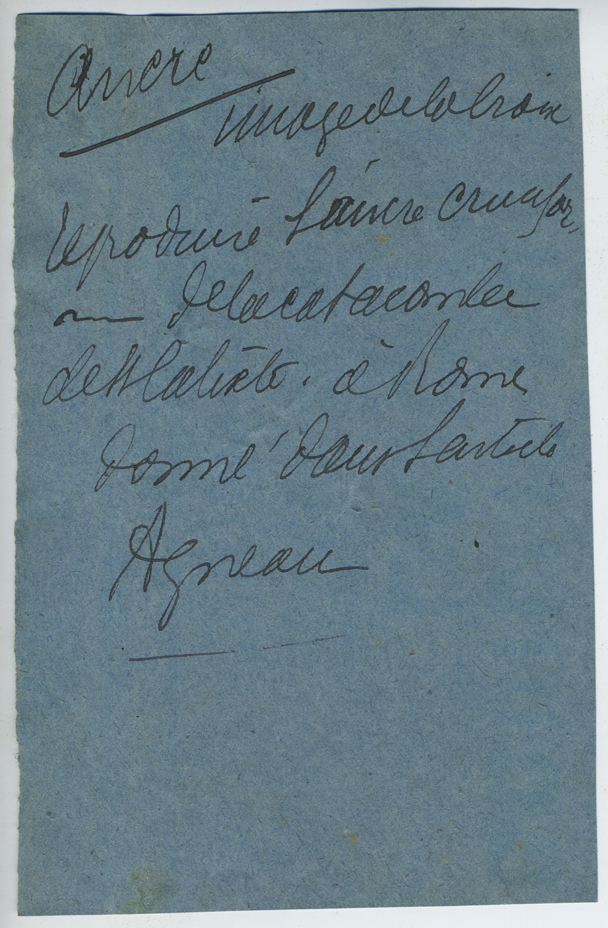 Ancre
image de la Croix
Reproduire l'ancre crucifor
me de la catacombe
de St Calixte. à Rome
donné dans l'article
Agneau